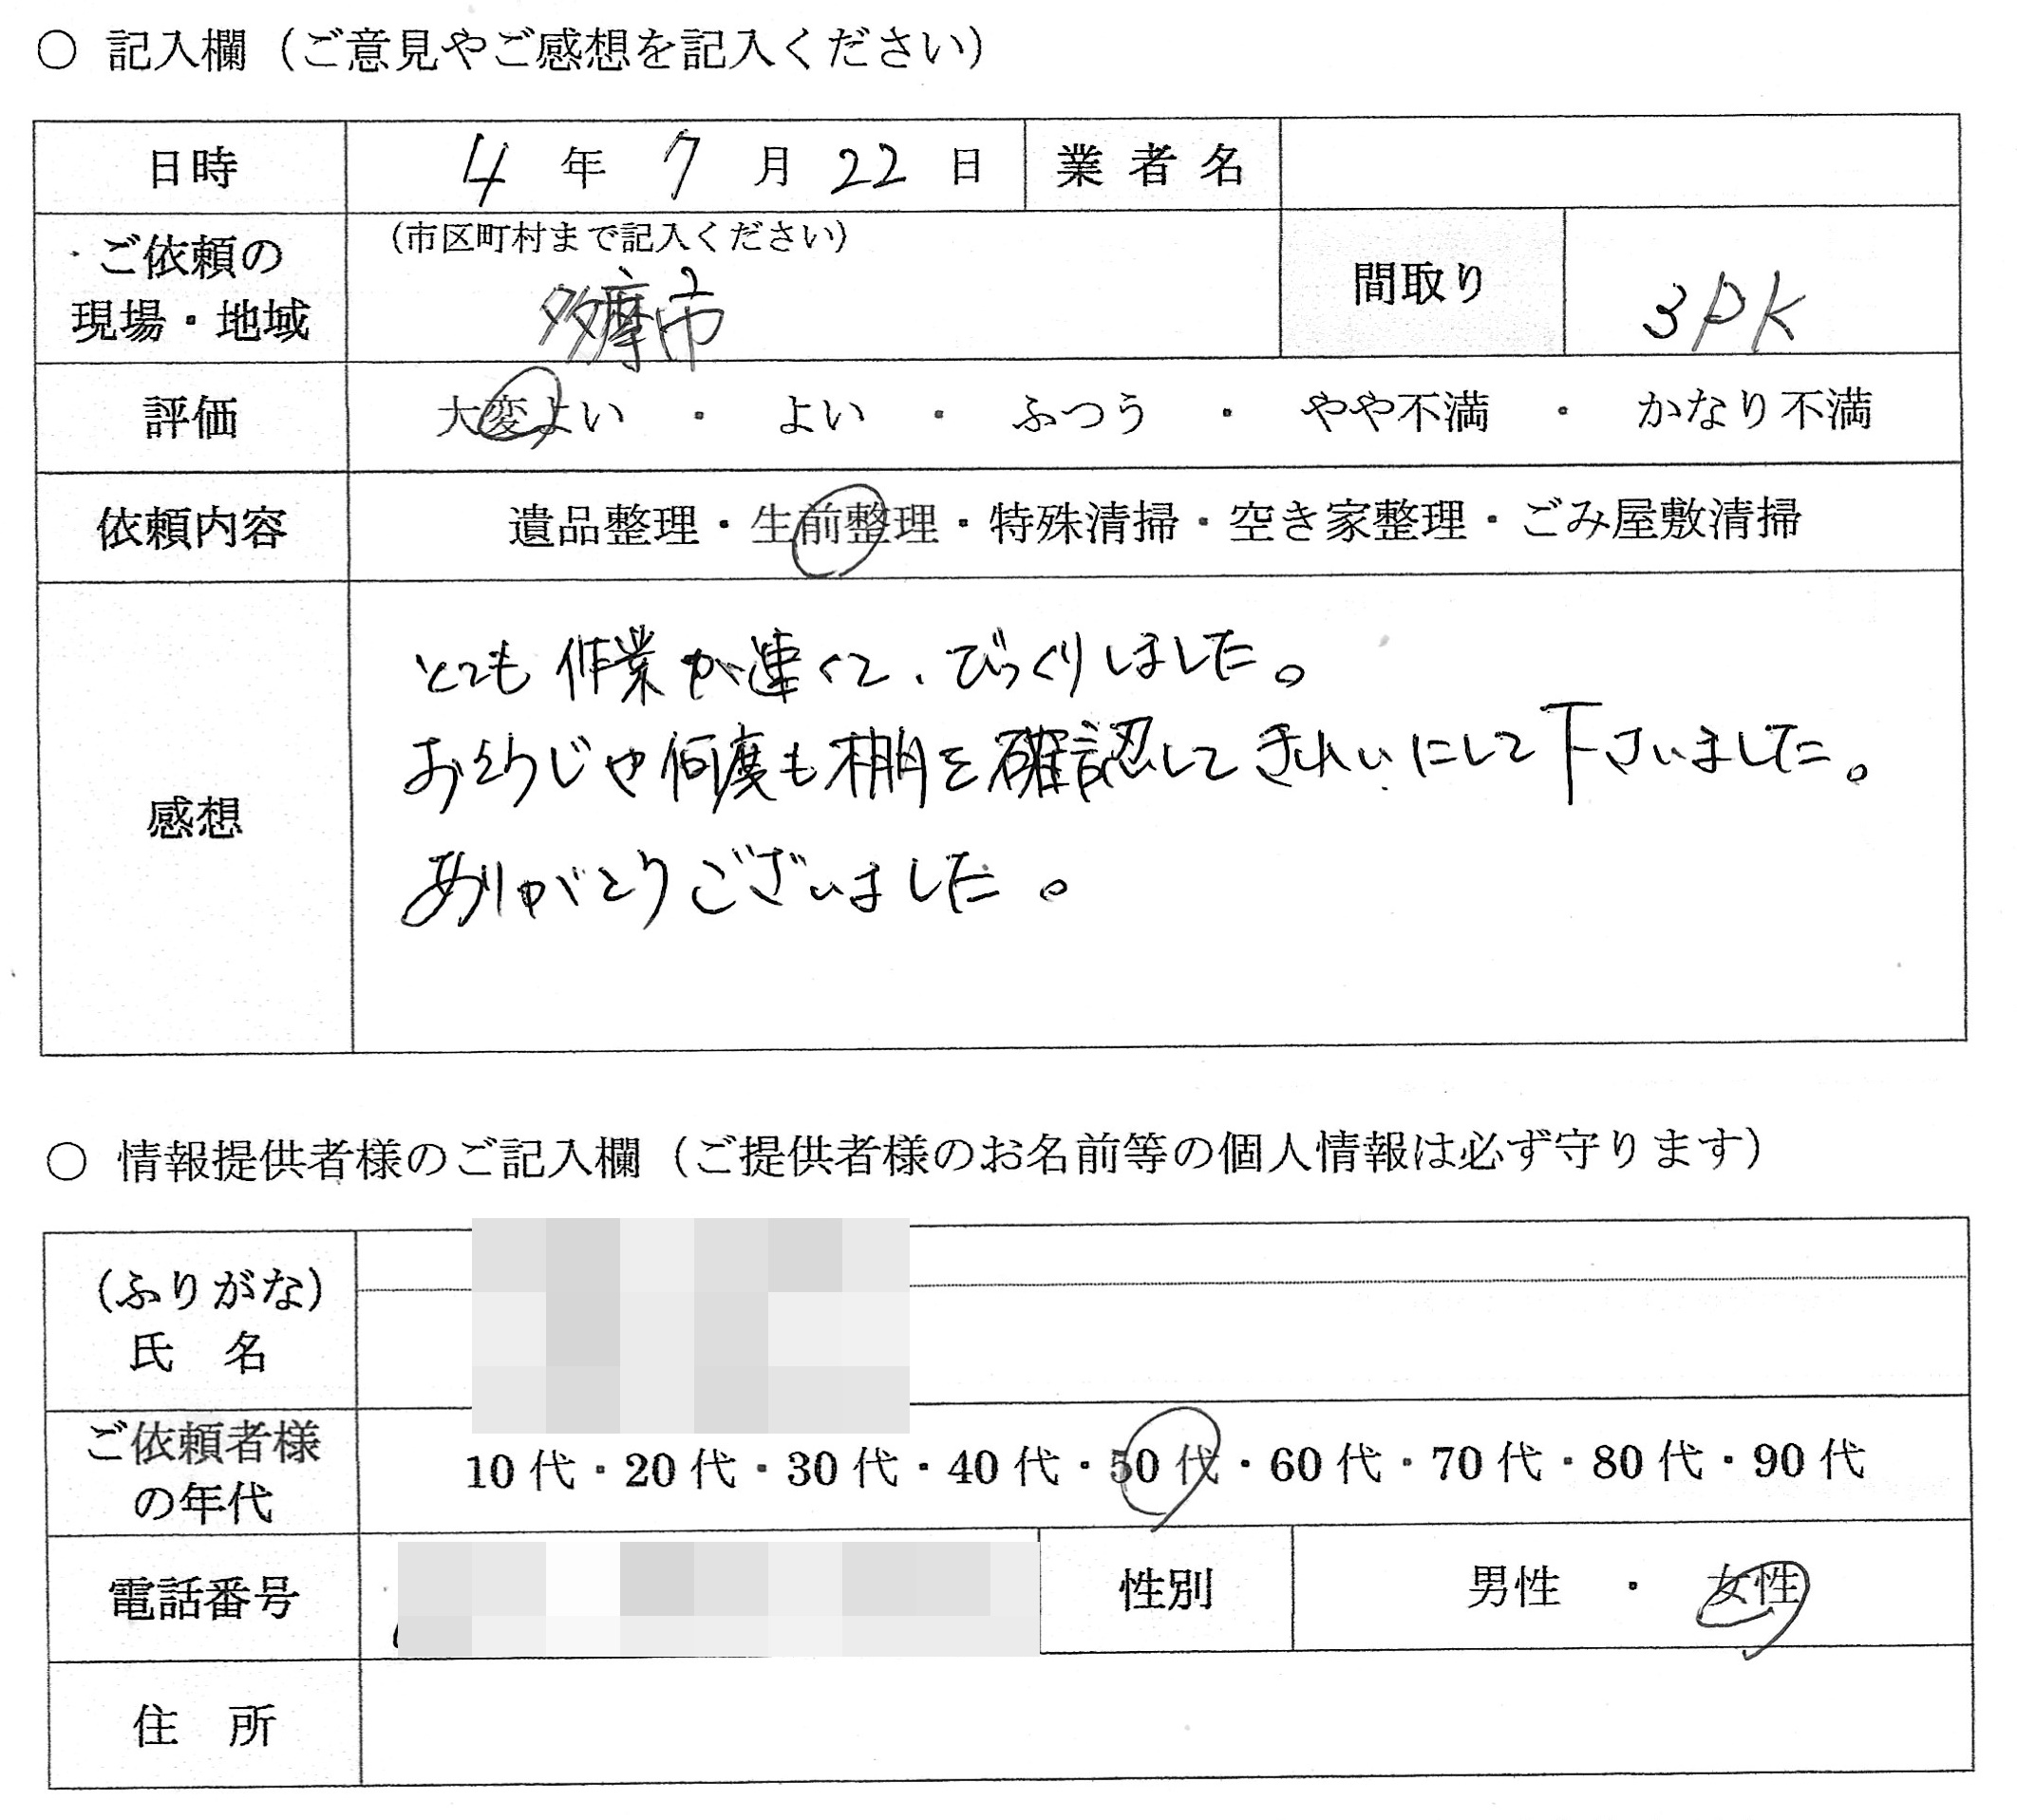 ○ 記入欄（ご意見やご感想を記入ください）
日時 4 年 7 月 22 日 業者名
ご依頼の現場・地域 （市区町村まで記入ください） 多摩市 間取り 3DK
評価 大変よい ・ よい ・ ふつう ・ やや不満 ・ かなり不満
依頼内容 遺品整理・生前整理・特殊清掃・空き家整理・ごみ屋敷清掃
感想
とても作業が速くて、びっくりしました。
おそうじや何度も棚を確認してきれいにして下さいました。
ありがとうございました。
○ 情報提供者様のご記入欄（ご提供者様のお名前等の個人情報は必ず守ります）
（ふりがな）
氏 名
ご依頼者様の年代 10代・20代・30代・40代・50代・60代・70代・80代・90代
電話番号 性別 男性 ・ 女性
住 所